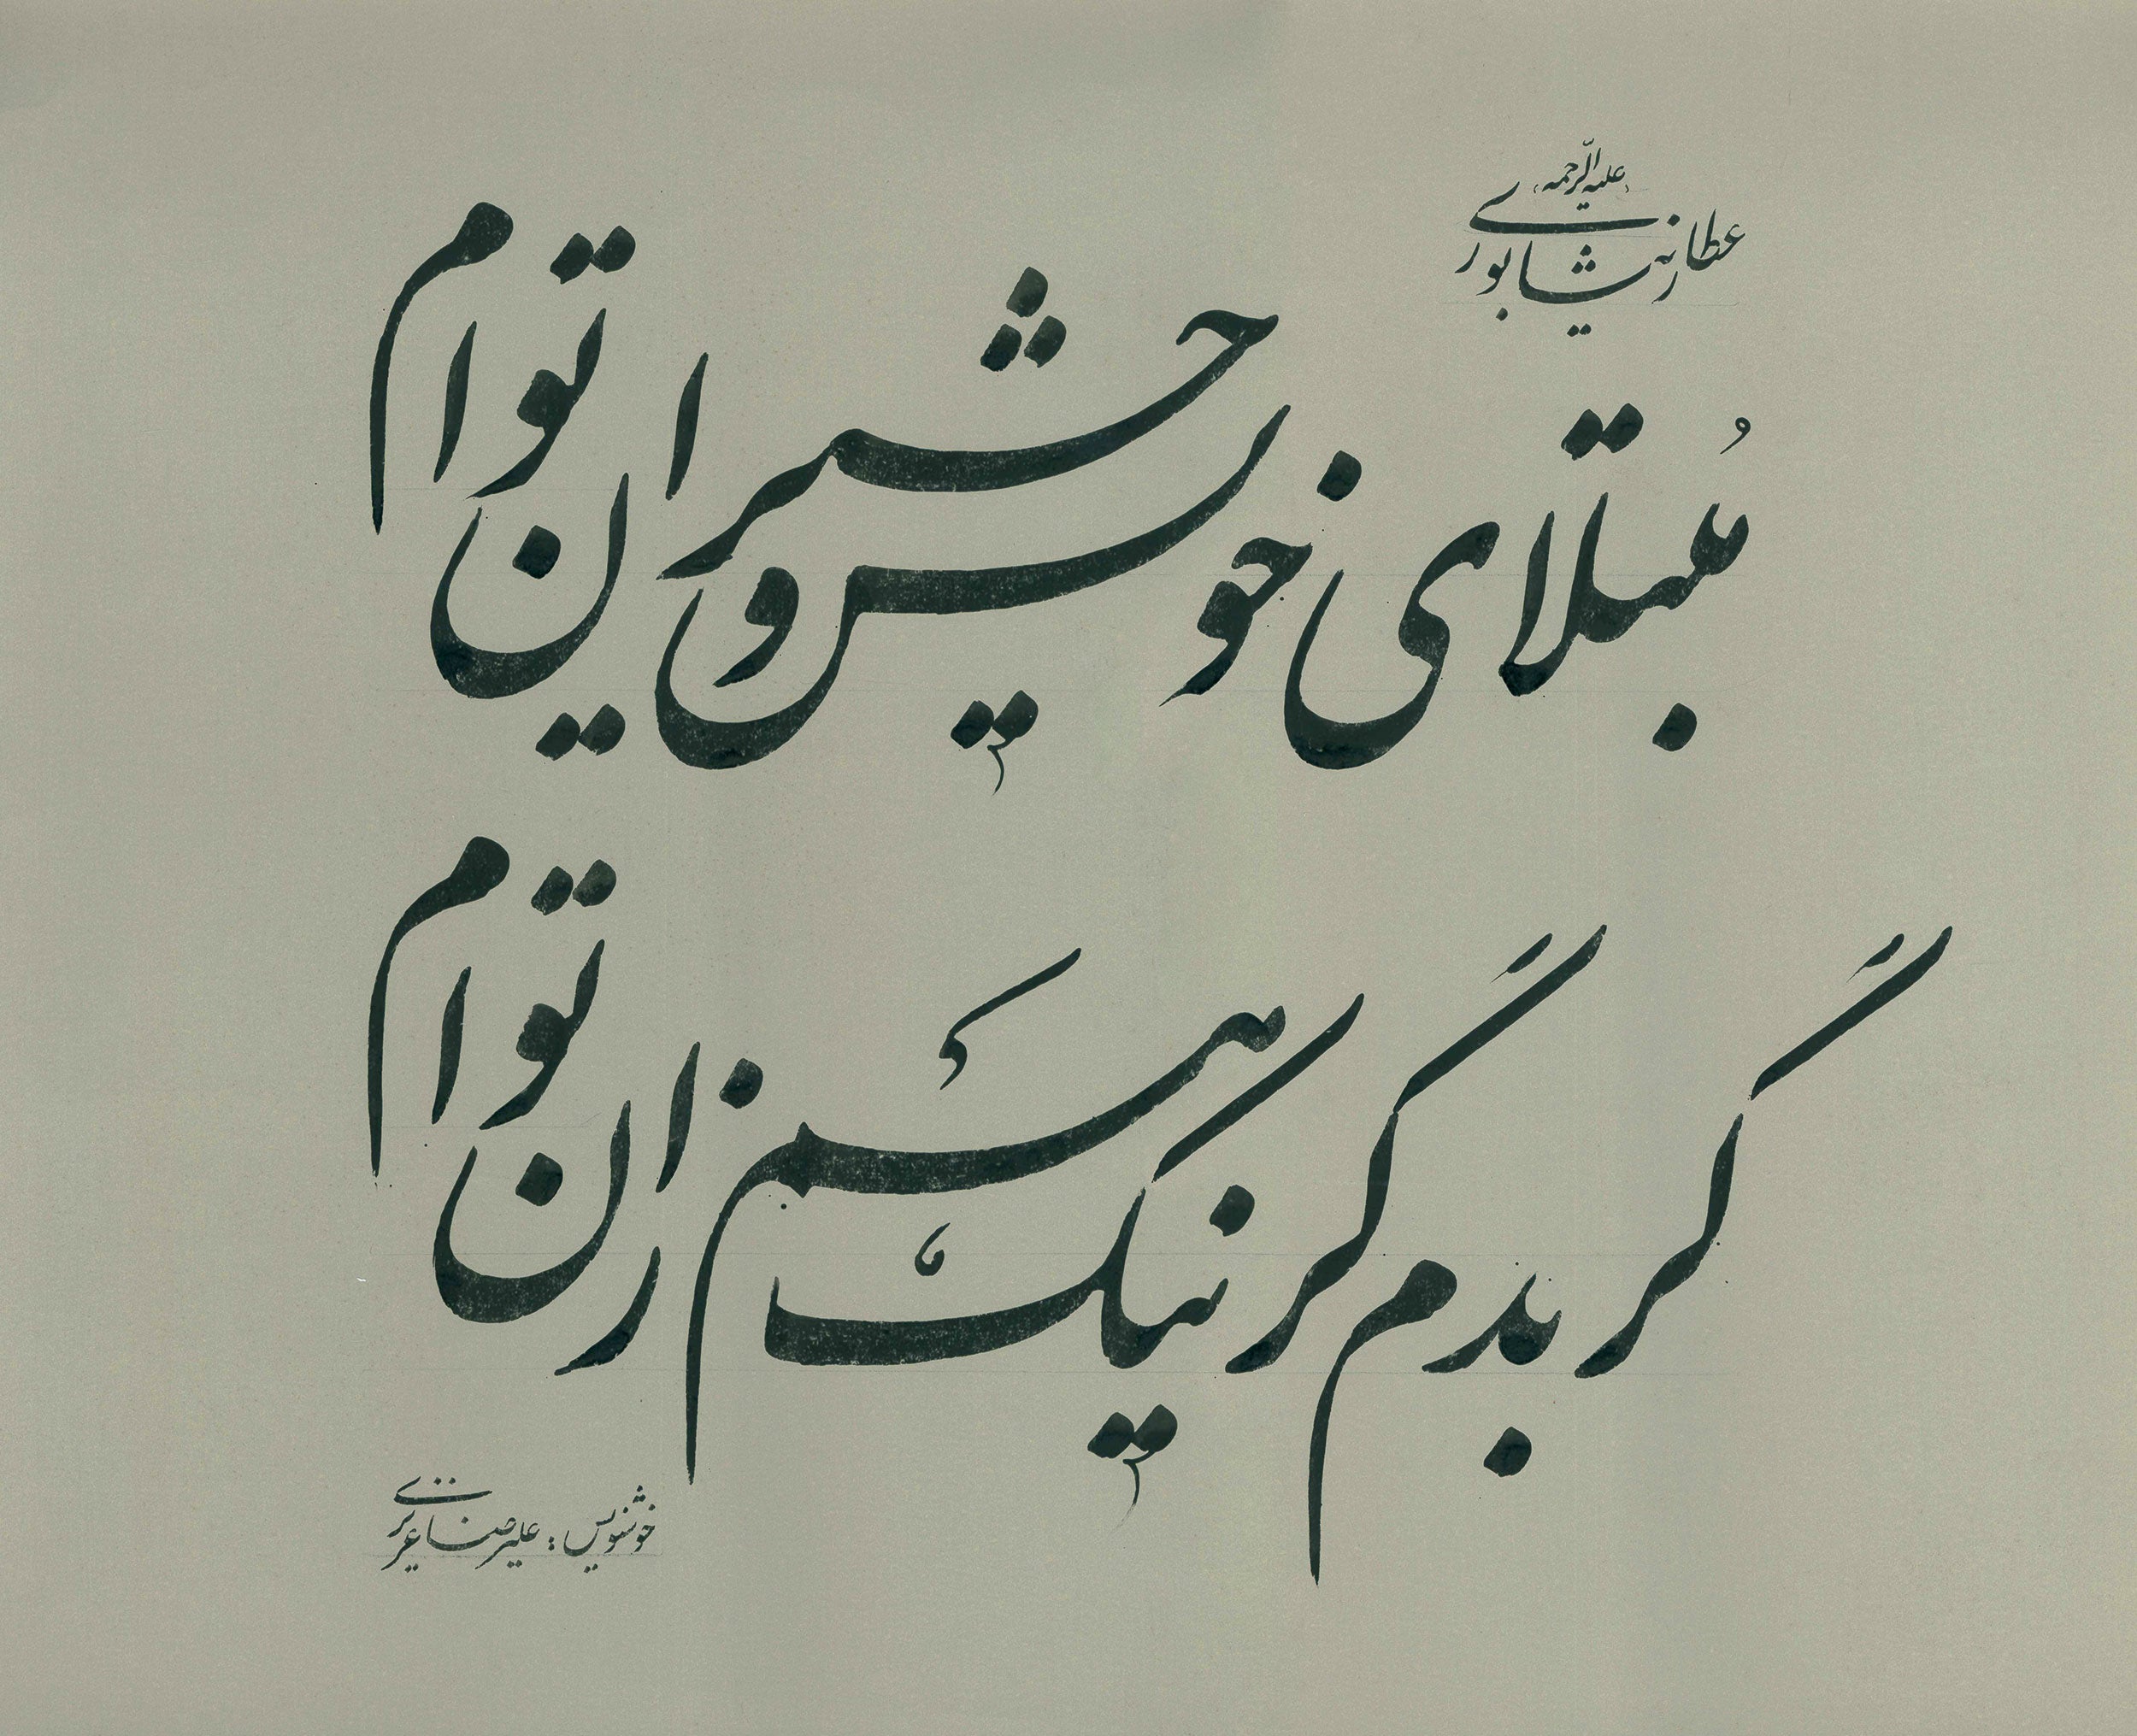 عطار نیشابوری
علیه الرّحمه
مُبتلای خویش و حیران توام
گر بدم گر نیک هم زان توام
خوشنویس: علیرضا عزیزی